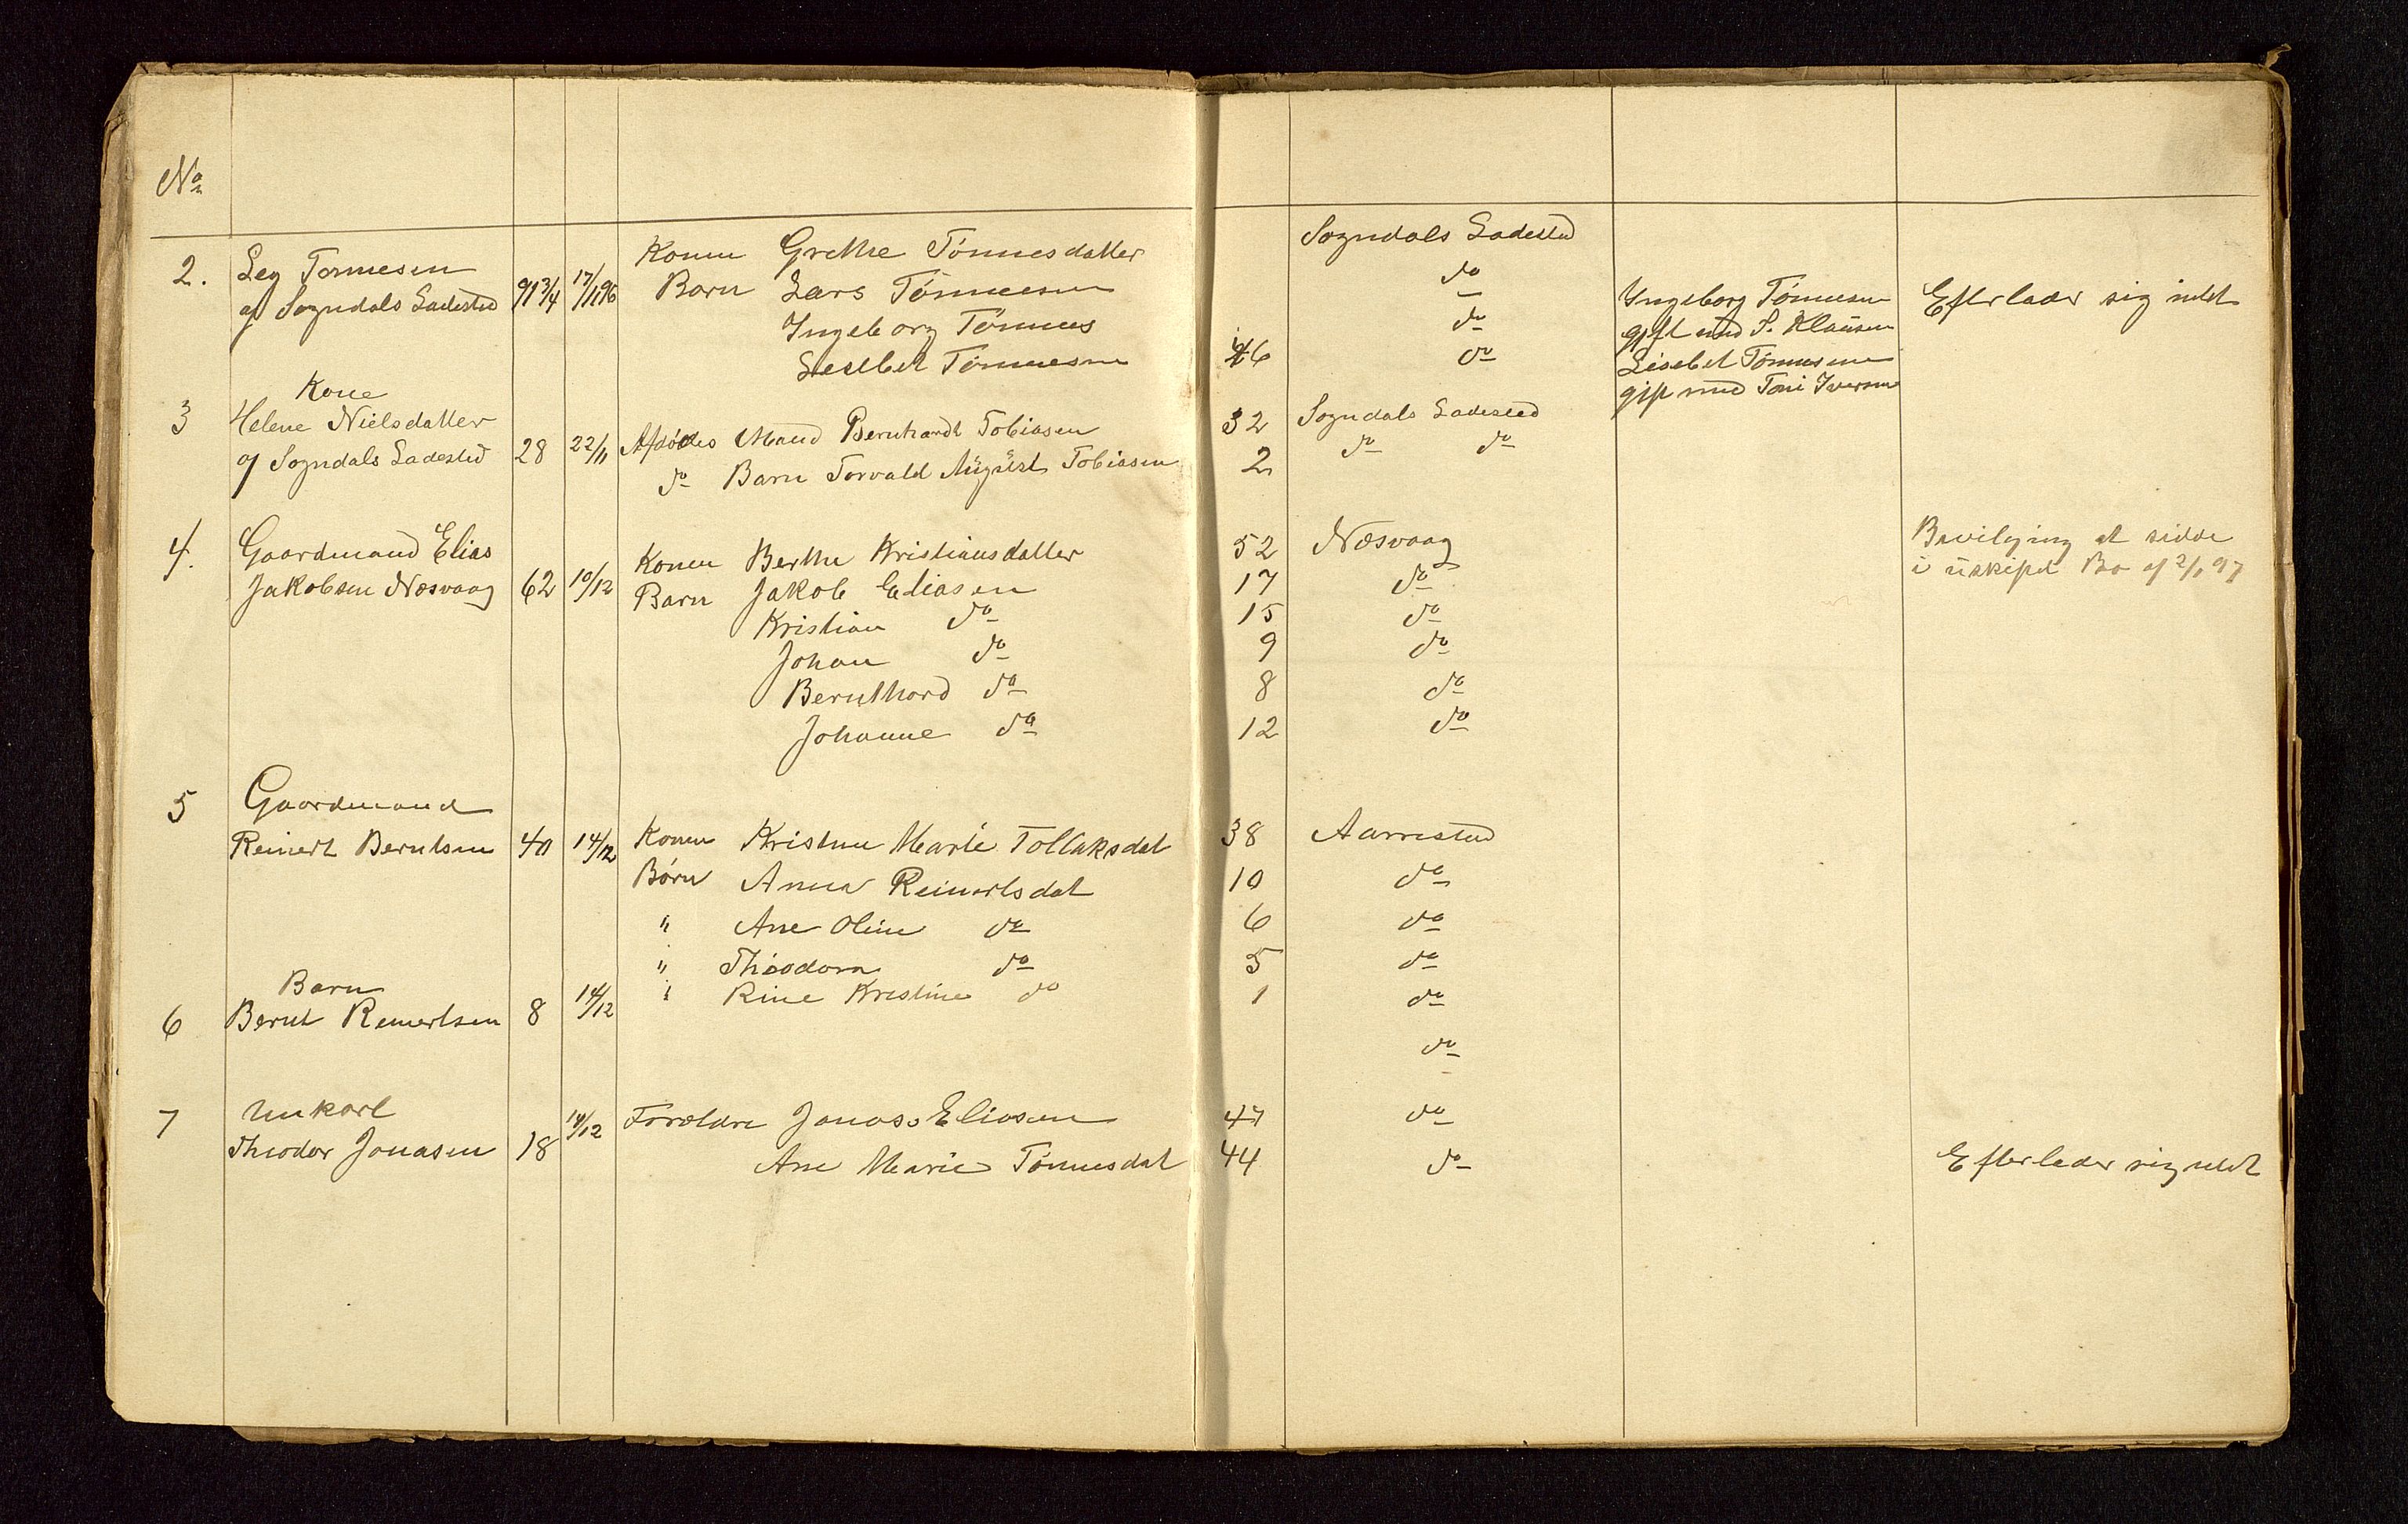 No
2. Leg Tormesen
af Sogndals Ladested 91 3/4 17/11 96
Konen Grethe Tönnesdatter Sogndals Ladested
Barn Lars Tönnesen do
Ingeborg Tönnes do
Lesebet Tönnesen 46 do
Ingeborg Tönnesen
gift med S. Klausen
Lisebet Tönnesen
gift med Toni Iversen
Efterlader sig intet
Kone
3 Helene Nielsdatter
af Sogndals Ladested 28 22/11
Afdødes Mand Bernhardt Tobiasen 32 Sogndals Ladested
do Barn Torvald August Tobiasen 2 do do
4. Gaardmand Elias
Jakobsen Næsvaag 62 10/12
Konen Berthe Kristiansdatter 52 Næsvaag
Barn Jakob Eliasen 17 do
Kristian do 15 do
Johan do 9 do
Bernthard do 8 do
Johanne do 12 do
Bevilgning at sidde
i uskiftet Bo af 2/1 97
5 Gaardmand
Reinert Berntsen 40 14/12
Konen Kristine Marie Tollaksdat 38 Aarrestad
Børn Anna Reinertsdat 10 do
" Ane Oline do 6 do
" Theodora do 5 do
" Rine Kristine do 1 do
Barn
6 Bernt Reinertsen 8 14/12
do
7 Unkarl
Theodor Jonasen 18 14/12
Forældre Jonas Eliasen 47 do
Ane Marie Tönnesdat 44 do
Efterlader sig intet